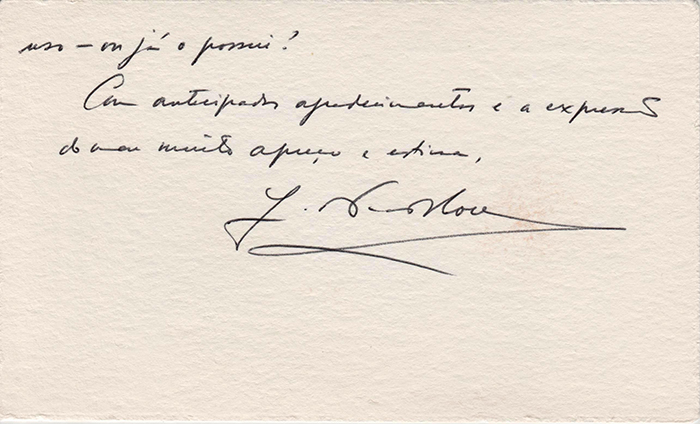 uso – ou já o possui?
Com antecipados agradecimentos e a expressão
do meu muito apreço e estima,